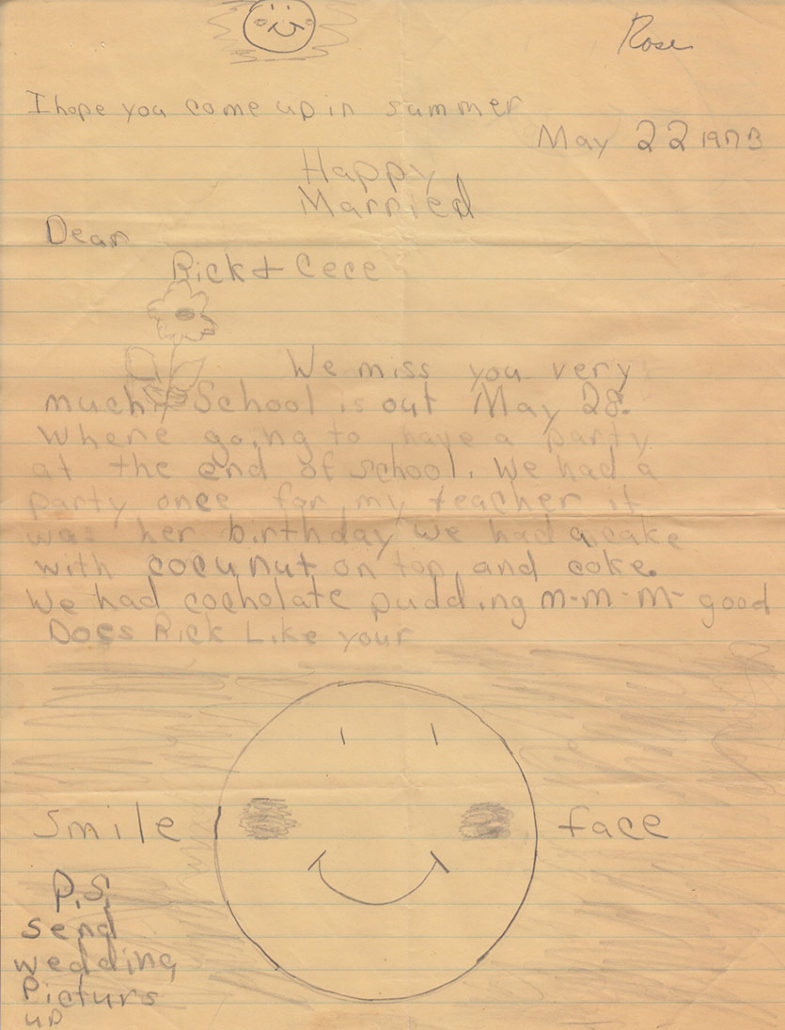 Rose
I hope you come up in summer
May 22 1973
Happy
Married
Dear
Rick & Cece
We miss you very
much School is out May 28.
Where going to have a party
at the end of school. We had a
party once for my teacher it
was her birthday we had a cake
with cocunut on top and coke.
We had cocholate pudding m-m-m- good
Does Rick Like your
smile face
P.S.
send
wedding
Picturs
up